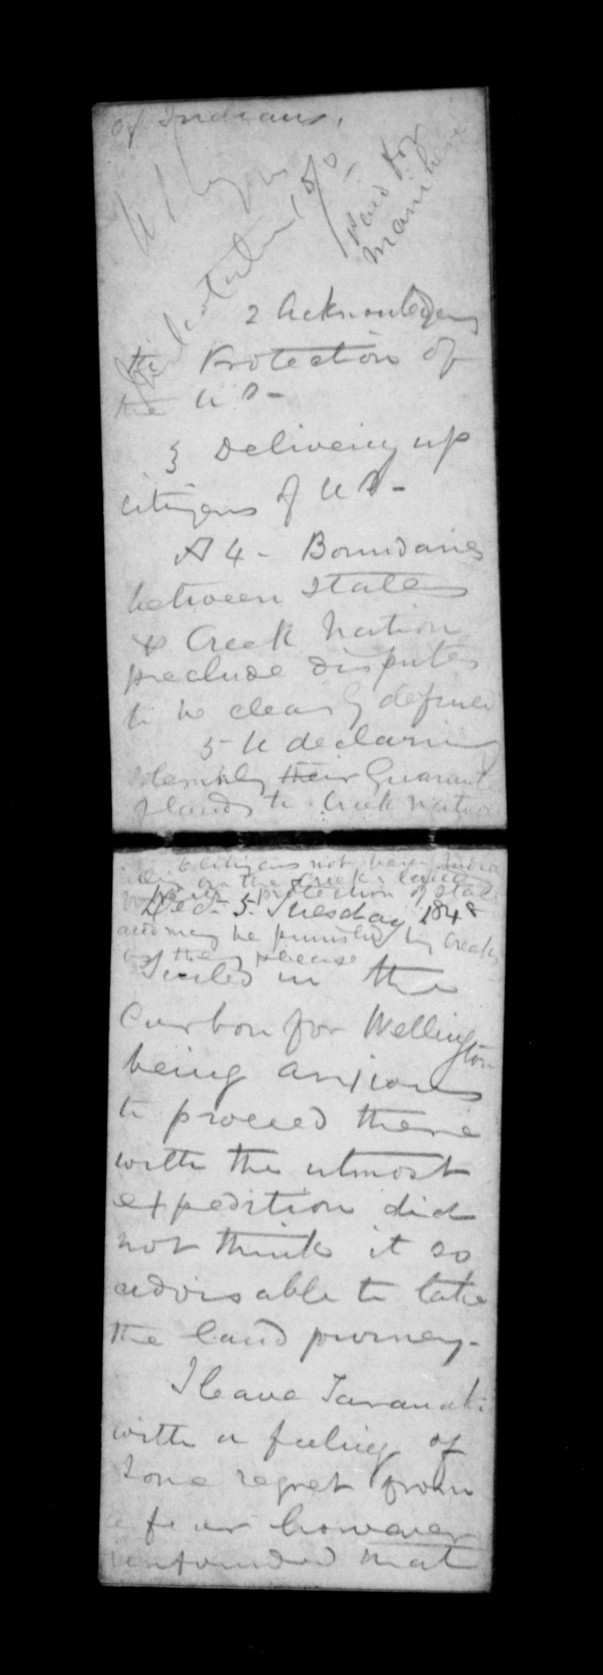 of Indians.
Paid for
2 Acknowledging
the Protection of
the U S -
3 Delivering up
citizens of U S -
A 4 - Boundaries
between States
& Creek Nation
preclude disputes
to be clearly defined
5 - U declaring
solemnly their Guarant
of lands to Creek Nation
6 Citizens not being Indian
on the Creeks lands
protection of State
Dec. 5. Tuesday 1848
and may be punished by Creeks
as they please
Sailed in the
Carbon for Wellington
being anxious
to proceed there
with the utmost
expedition did
not think it so
advisable to take
the land journey -
I leave Taranaki
with a feeling of
some regret from
a fear however
unfounded that